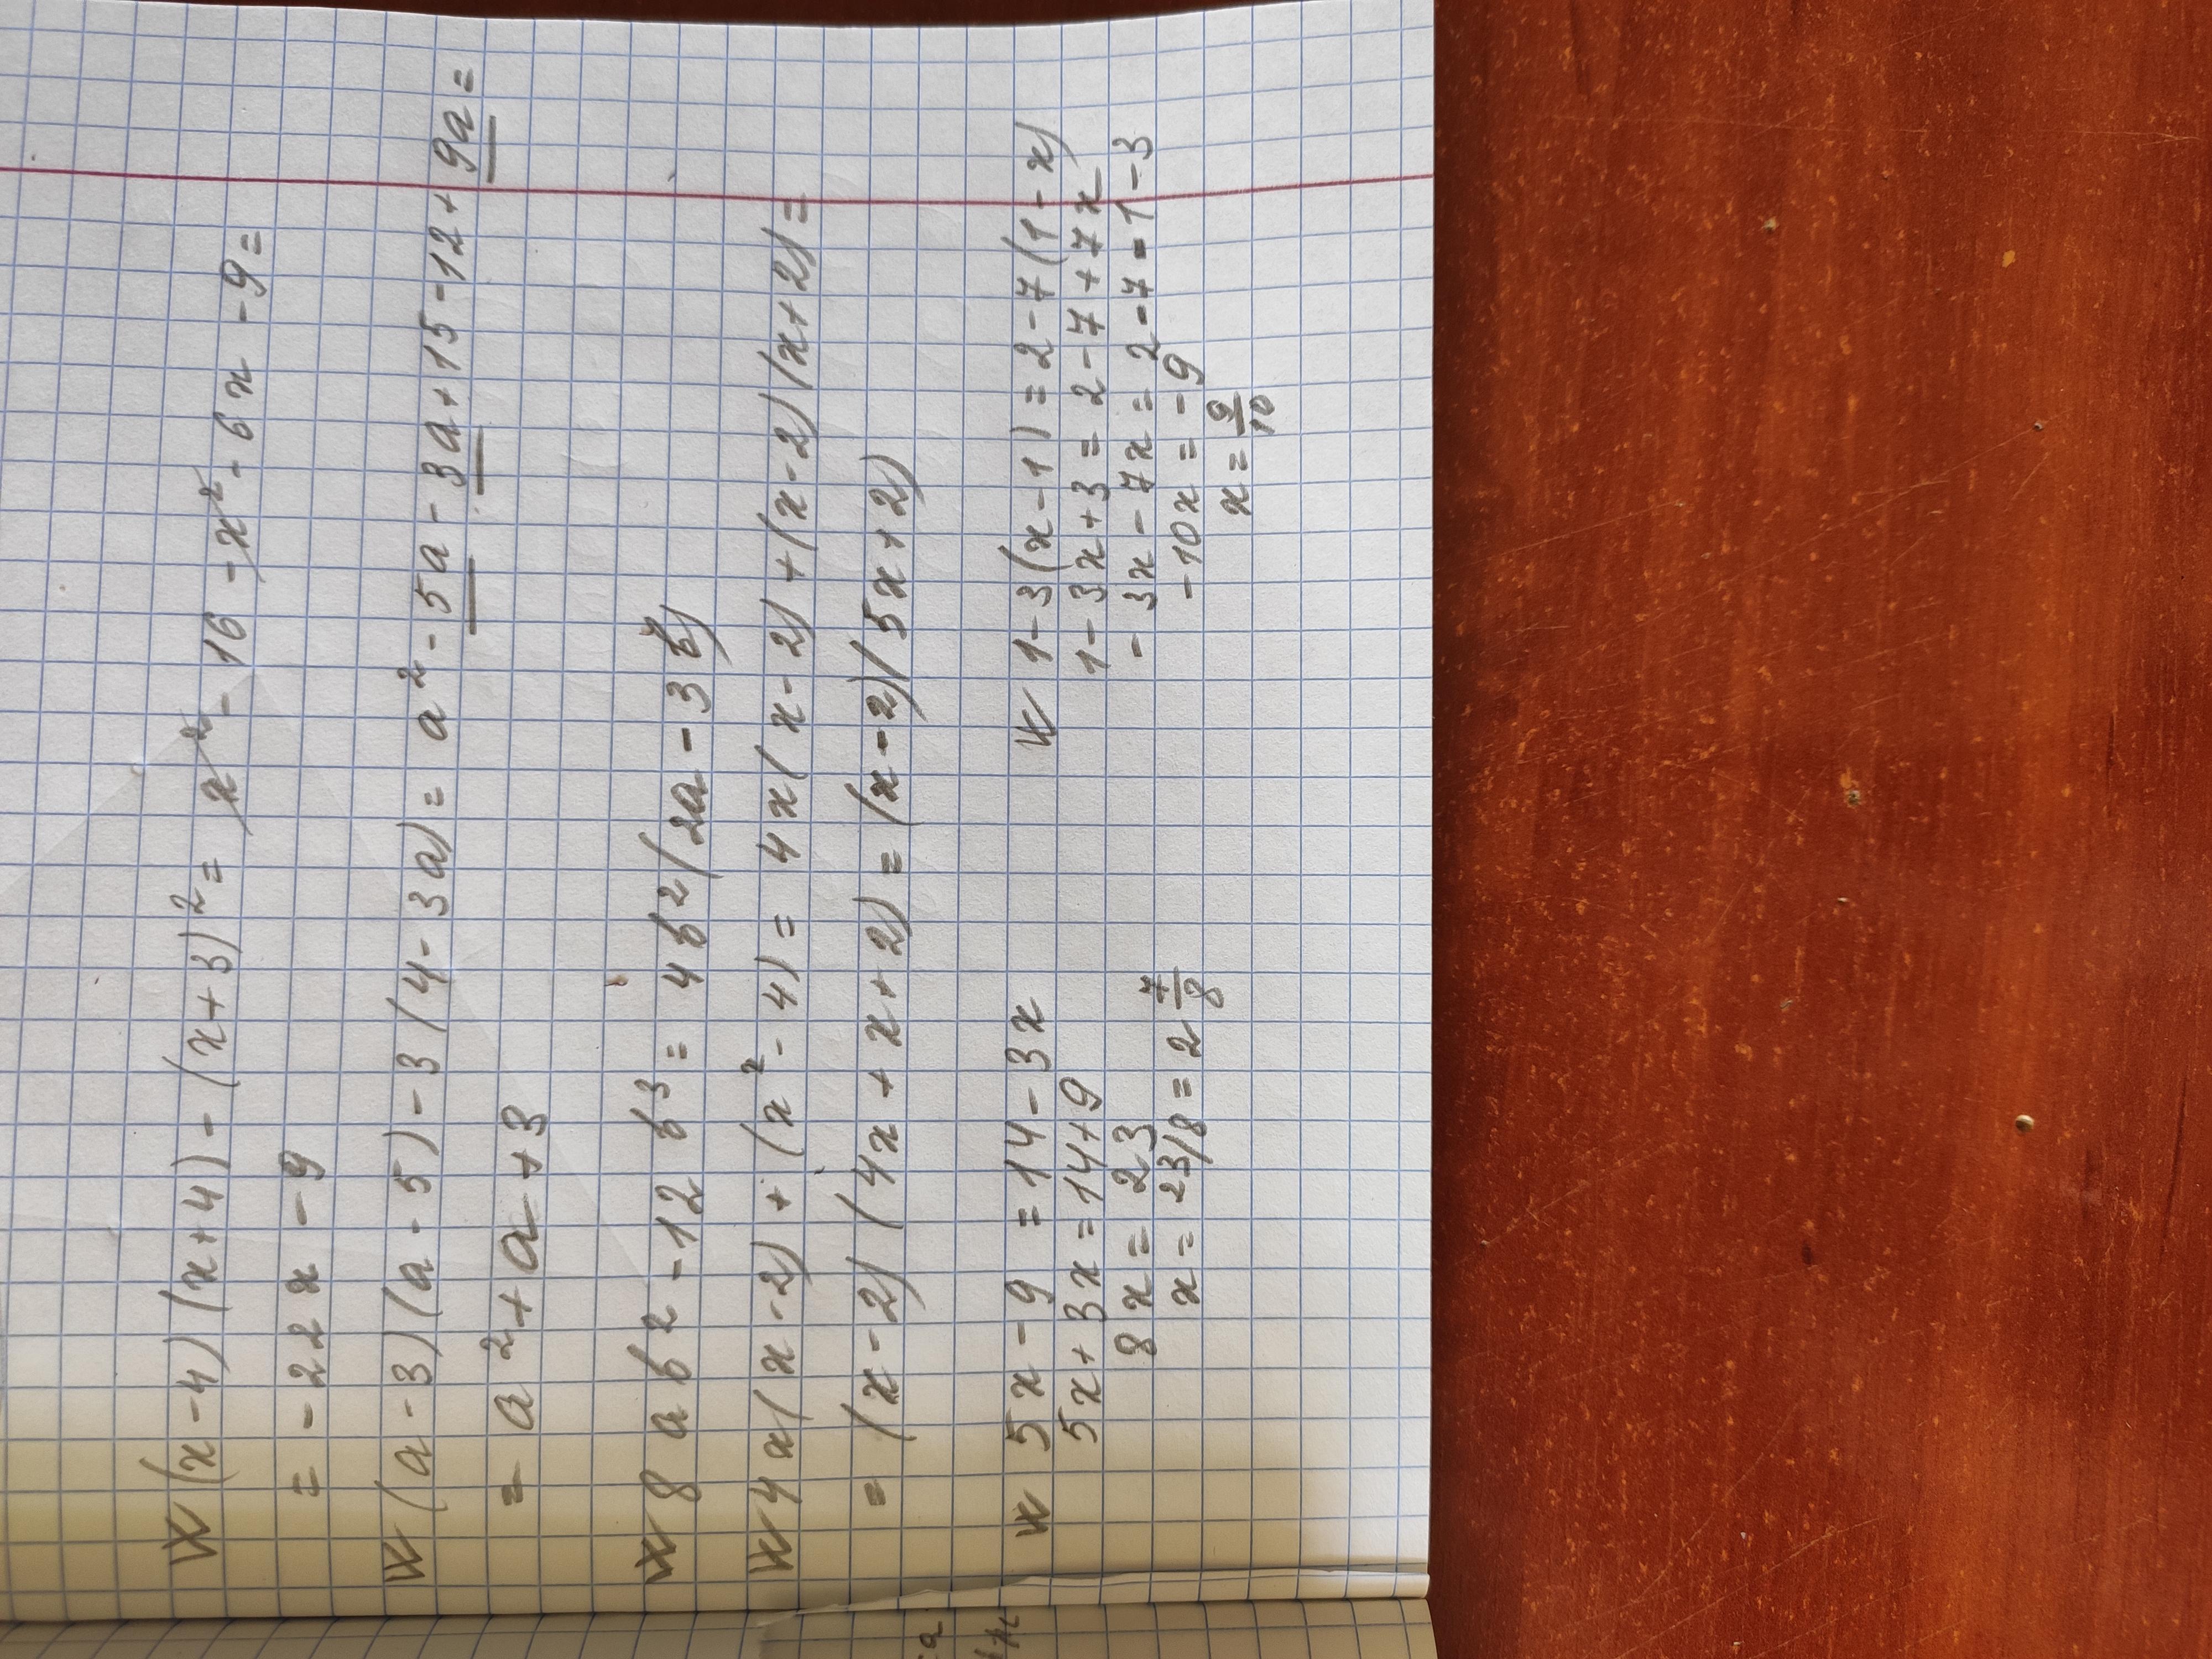 W (x-4)(x+4)-(x+3)²= x²-16-x²-6x-9=
= -22x-9
W (a-3)(a-5)-3(4-3a)= a²-5a-3a+15-12+9a=
= a²+a+3
W 8ab²-12b³= 4b²(2a-3b)
W 4x(x-2)+(x²-4)= 4x(x-2)+(x-2)(x+2)=
= (x-2)(4x+x+2)=(x-2)(5x+2)
W 5x-9=14-3x
5x+3x=14+9
8x=23
x=23/8=2 7/8
W 1-3(x-1)=2-7(1-x)
1-3x+3=2-7+7x
-3x-7x=2-7-1-3
-10x=-9
x=9/10